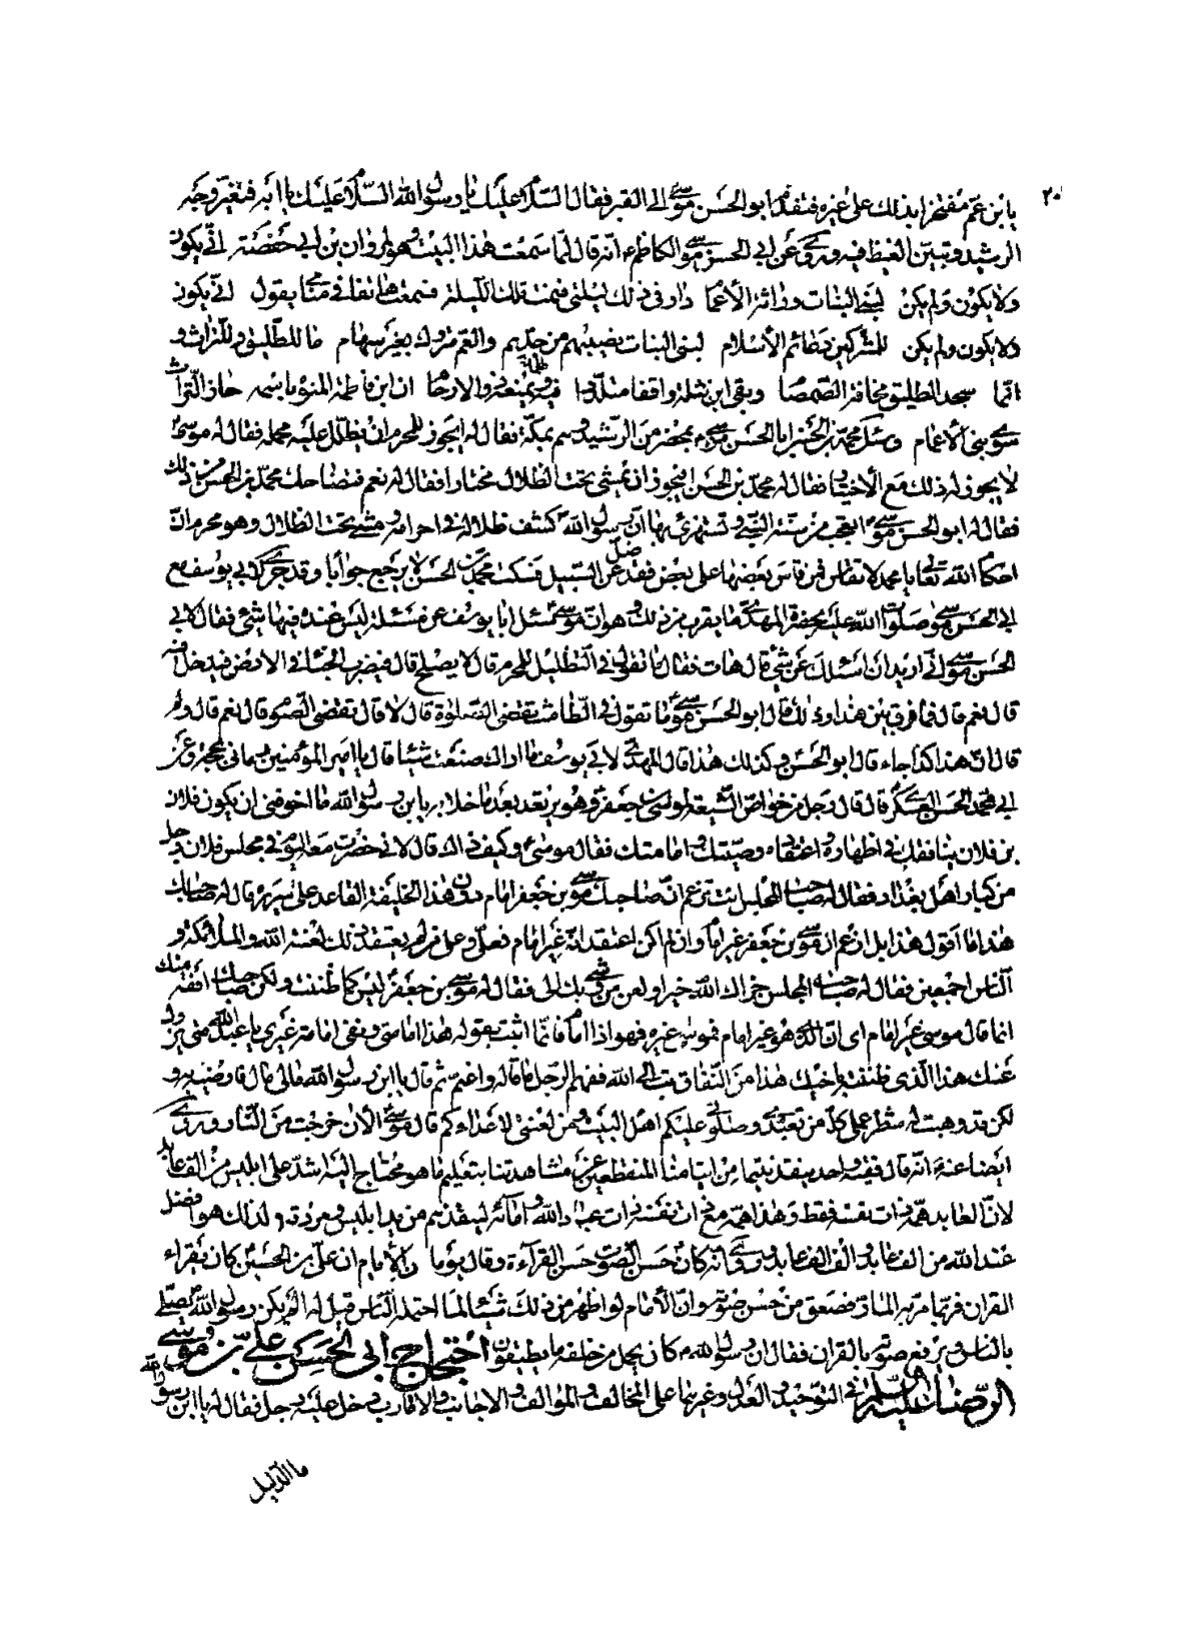 ٢٠
يا بن عم مفتخرا بذلك على غيره فتقدم ابو الحسن موسى الى القبر فقال السلام عليك يا رسول الله السلام عليك يا ابه فتغير وجه
الرشيد وتبين الغيظ فيه وروى عن ابى الحسن موسى الكاظم ع انه قال لما سمعت هذا البيت وهو لمروان بن ابى حفصة انى يكون
ولا يكون ولم يكن لبنى البنات وراثة الاعمام دار فى ذلك ليلتى فنمت تلك الليلة فسمعت هاتفا فى منامى يقول انى يكون
ولا يكون ولم يكن للمشركين دعائم الاسلام لبنى البنات نصيبهم من جدهم والعم متروك بغير سهام ما للطليق وللتراث و
انما سجد الطليق مخافة الصمصام وبقى ابن نثلة واقفا متلددا فيه ويمنعه ذوو الارحام ان ابن فاطمة المنوه باسمه حاز التراث
سوى بنى الاعمام وسئل محمد بن الحسن ابا الحسن موسى ع بمحضر من الرشيد وهم بمكة فقال له ايجوز للمحرم ان يظلل عليه محمله فقال له موسى
لا يجوز له ذلك مع الاختيار فقال له محمد بن الحسن افيجوز ان يمشى تحت الظلال مختارا فقال له نعم فتضاحك محمد بن الحسن من ذلك
فقال له ابو الحسن موسى اتعجب من سنة النبى وتستهزئ بها ان رسول الله كشف ظلاله فى احرامه ومشى تحت الظلال وهو محرم ان
احكام الله تعالى يا محمد لا تقاس فمن قاس بعضها على بعض فقد ضل عن السبيل فسكت محمد بن الحسن لا يرجع جوابا وقد جرى لابى يوسف مع
ابى الحسن موسى صلوات الله عليه بحضرة المهدى ما يقرب من ذلك وهو ان موسى سئل ابا يوسف عن مسئلة ليس عنده فيها شئ فقال لابى
الحسن موسى انى اريد ان اسئلك عن شئ قال هات فقال ما تقول فى التظليل للمحرم قال لا يصلح قال فيضرب الخباء فى الارض فيدخل فيه
قال نعم قال فما فرق بين هذا وذلك قال ابو الحسن موسى ما تقول فى الطامث تقضى الصلوة قال لا قال تقضى الصوم قال نعم قال ولم
قال ان هذا كذا جاء قال ابو الحسن وكذلك هذا قال المهدى لابى يوسف ما اراك صنعت شيئا قال يا امير المؤمنين رمانى بحجر وعن
ابى محمد الحسن العسكرى قال قال رجل من خواص الشيعة لموسى بن جعفر وهو يرتعد بعد ما خلا به يا بن رسول الله ما اخوفنى ان يكون فلان
بن فلان ينافقك فى اظهاره اعتقاد وصيتك وامامتك فقال موسى وكيف ذاك قال لانى حضرت معه اليوم فى مجلس فلان رجل
من كبار اهل بغداد فقال له صاحب المجلس انت تزعم ان صاحبك موسى بن جعفر امام دون هذا الخليفة القاعد على سريره قال له صاحبك
هذا ما اقول هذا بل ازعم ان موسى بن جعفر غير امام وان لم اكن اعتقد انه غير امام فعلى وعلى من لم يعتقد ذلك لعنة الله والملائكة و
الناس اجمعين فقال له صاحب المجلس جزاك الله خيرا ولعن من وشى بك الى فقال له موسى بن جعفر ليس كما ظننت ولكن صاحبك افقه منك
انما قال موسى غير امام اى ان الذى هو غير امام فموسى غيره فهو اذا امام فانما اثبت بقوله هذا امامتى ونفى امامة غيرى يا عبد الله متى يزول
عنك هذا الذى ظننته باخيك هذا من النفاق تب الى الله ففهم الرجل ما قاله واغتم ثم قال يا ابن رسول الله مالى مال فارضيه به و
لكن قد وهبت له شطر عملى كله من تعبدى وصلوتى عليكم اهل البيت ومن لعنتى لاعدائكم قال موسى الان خرجت من النار وروى
ايضا عنه انه قال فقيه واحد ينقذ يتيما من ايتامنا المنقطعين عن مشاهدتنا بتعليم ما هو محتاج اليه اشد على ابليس من الف عابد
لان العابد همه ذات نفسه فقط وهذا همه مع ذات نفسه ذات عباد الله وامائه لينقذهم من يد ابليس ومردته ولذلك هو افضل
عند الله من الف عابد والف الف عابد وروى انه كان حسن الصوت حسن القراءة وقال يوما من الايام ان على بن الحسين كان يقراء
القران فربما مر به المار فصعق من حسن صوته وان الامام لو اظهر من ذلك شيئا لما احتمله الناس قيل له الم يكن رسول الله يصلى
بالناس ويرفع صوته بالقران فقال ان رسول الله كان يحمل من خلفه ما يطيقون احتجاج ابى الحسن على بن موسى
الرضا عليه السلم فى التوحيد والعدل وغيرهما على المخالف والمؤالف والاجانب والاقارب دخل عليه رجل فقال له يا ابن رسول الله
ما الدليل